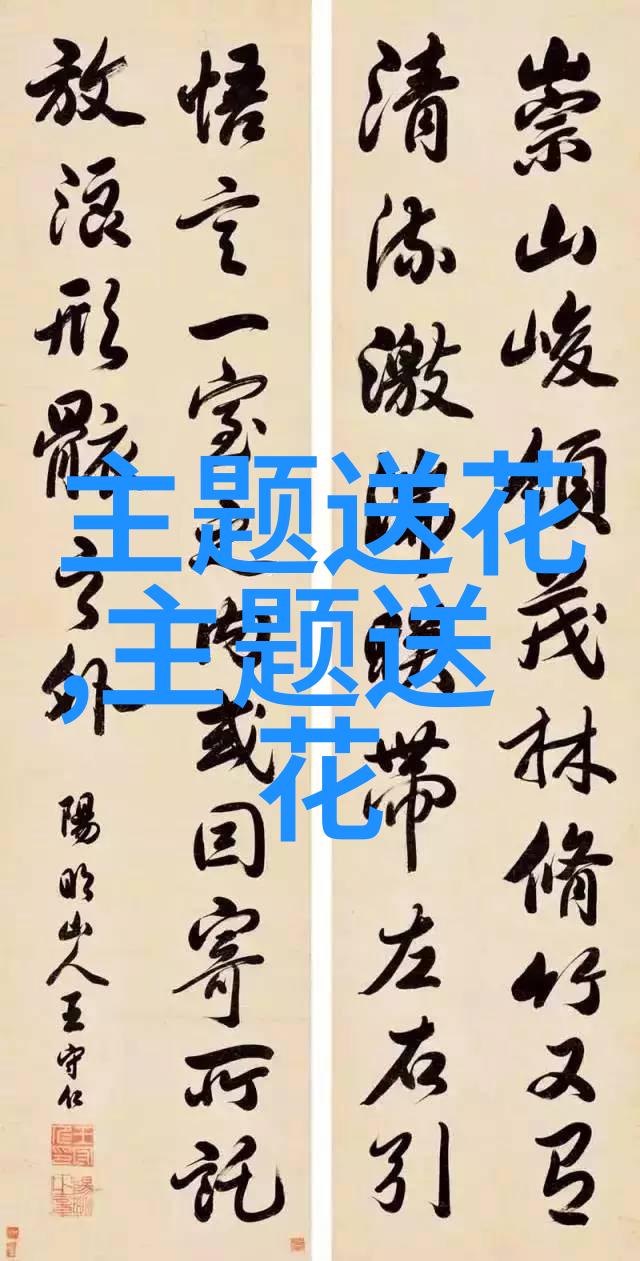 崇山峻領茂林脩竹又有
清流激湍暎帶左右引
悟言一室之內或因寄所託
放浪形骸之外
陽明山人王守仁
主题送花
,主题送
花